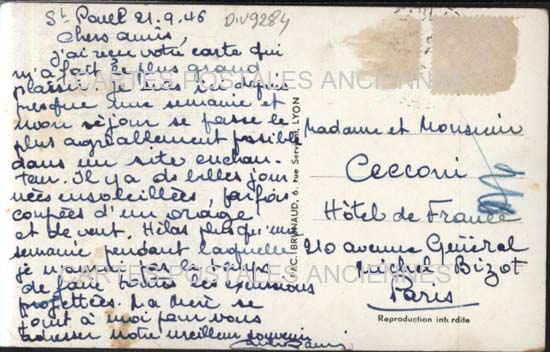 St Paul 21.9.46
DIV9284
Chers amis,
j'ai reçu votre carte qui
m'a fait le plus grand
plaisir. Je suis ici depuis
presque une semaine et
mon séjour se passe le
plus agréablement possible
dans un site enchan-
teur. Il y a de belles jour-
nées ensoleillées, parfois
coupées d'un orage
et de vent. Hélas plus qu'une
semaine pendant laquelle
je n'aurai pas le temps
de faire toutes les excursions
projettées. Ma Mère se
joint à moi pour vous
adresser notre meilleur souvenir
CARTES POSTALES ANCIENNES
CARTES POSTALES ANCIENNES
BRUNAUD, 6, rue Servient, LYON
Madame et Monsieur
Cecconi
Hôtel de France
210 avenue Général
Michel Bizot
Paris
Reproduction interdite